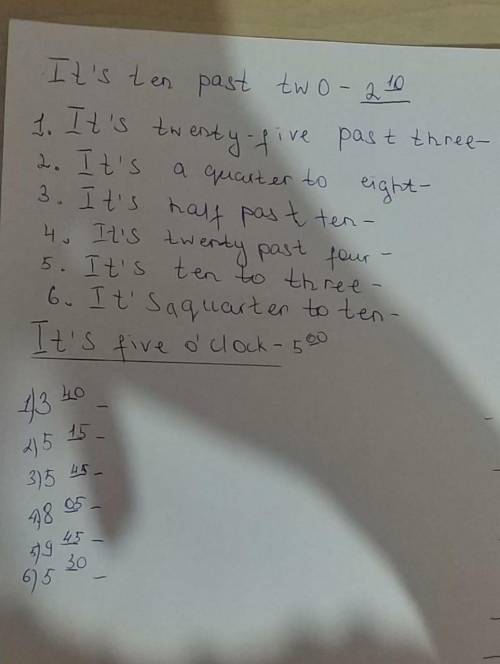 It's ten past two - 2 10
1. It's twenty-five past three-
2. It's a quarter to eight-
3. It's half past ten-
4. It's twenty past four-
5. It's ten to three-
6. It's a quarter to ten-
It's five o'clock - 5 00
1) 3 40 -
2) 5 15 -
3) 5 45 -
4) 8 05 -
5) 9 45 -
6) 5 30 -